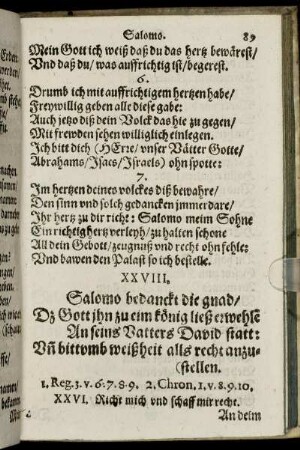 Salomo. 89
Mein Gott ich weiß daß du das hertz bewärest/
Vnd daß du/ was auffrichtig ist/ begerest.
6.
Drumb ich mit auffrichtigem hertzen habe/
Freywillig geben alle diese gabe:
Auch jetzo diß dein Volck das hie zu gegen/
Mit frewden sehen williglich einlegen.
Ich bitt dich (HErre/ vnser Vätter Gotte/
Abrahams/ Isacs/ Israels) ohn spotte:
7.
Im hertzen deines volckes diß bewahre/
Den sinn vnd solch gedancken immerdare/
Ihr hertz zu dir richt: Salomo meim Sohne
Ein richtig hertz verleyh/ zu halten schone
All dein Gebott/ zeugnuß vnd recht ohn fehle:
Vnd bawen den Palast so ich bestelle.
XXVIII.
Salomo bedanckt die gnad/
Dz Gott jhn zu eim könig ließ erwehlē
An seins Vatters David statt:
Vñ bitt vmb weißheit alls recht anzu-
(stellen.
1. Reg. 3. v. 6. 7. 8. 9. 2. Chron. 1. v. 8. 9. 10.
XXVI. Richt mich vnd schaff mir recht.
An deim